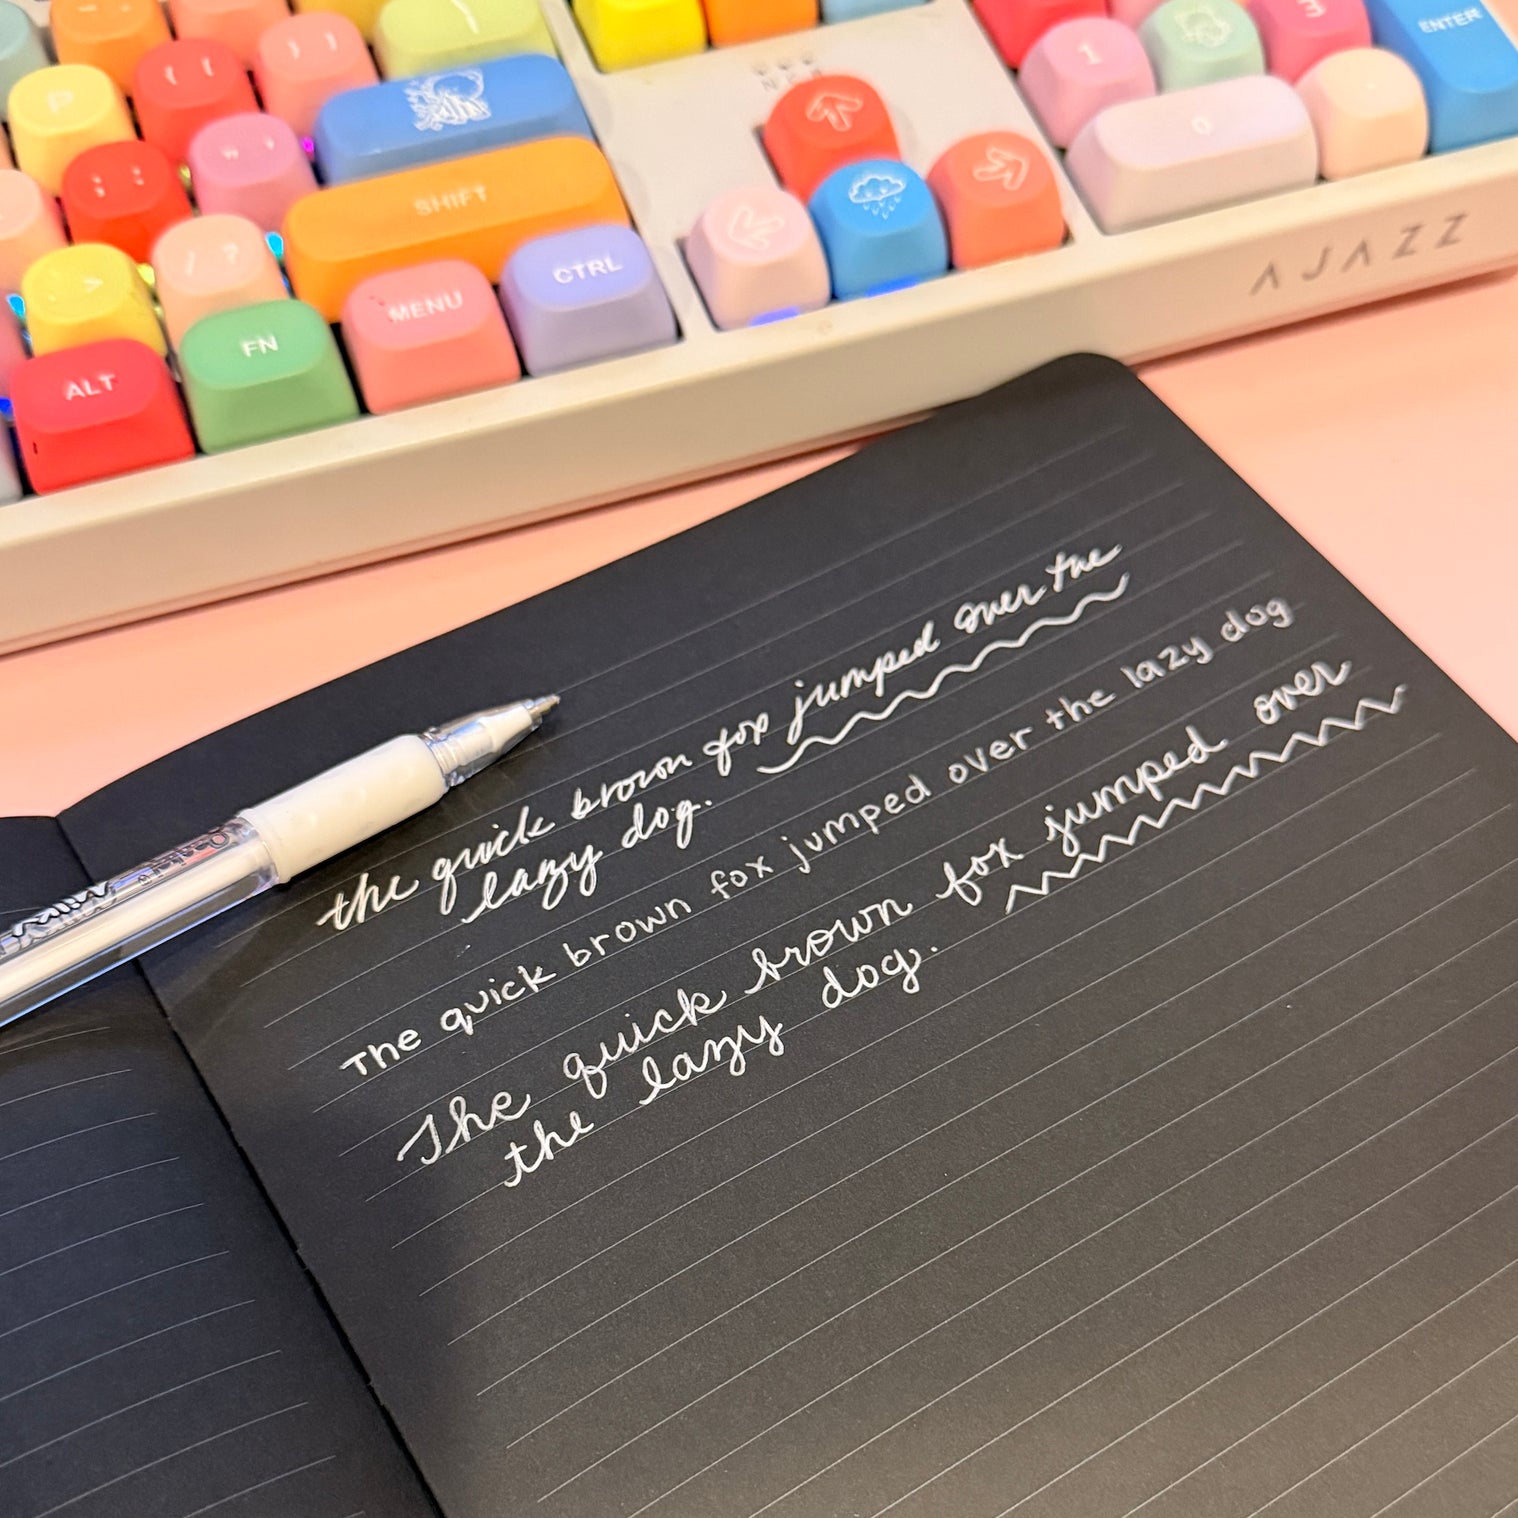 P
{ [ } ]
1
3
ENTER
" '
0
: ;
SHIFT
/ ?
CTRL
MENU
FN
ALT
AJAZZ
the quick brown fox jumped over the
lazy dog.
The quick brown fox jumped over the lazy dog
The quick brown fox jumped over
the lazy dog.